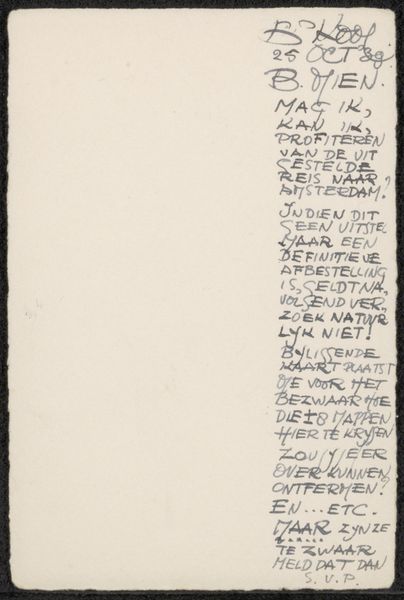 25 OCT 39.
B. MIEN.
MAG IK,
KAN IK,
PROFITEREN
VAN DE UIT
GESTELDE
REIS NAAR
AMSTERDAM?
INDIEN DIT
GEEN UITSTEL
MAAR EEN
DEFINITIEVE
AFBESTELLING
IS, GELDT NA,
VOLGEND VER,
ZOEK NATUUR
LYK NIET!
BYLIGGENDE
KAART PLAATST
ME VOOR HET
BEZWAAR HOE
DIE ±8 MAPPEN
HIER TE KRYGEN
ZOU JY JE ER
OVER KUNNEN
ONTFERMEN?
EN...ETC.
MAAR ZYN ZE
TE ZWAAR
MELD DAT DAN
S.V.P.